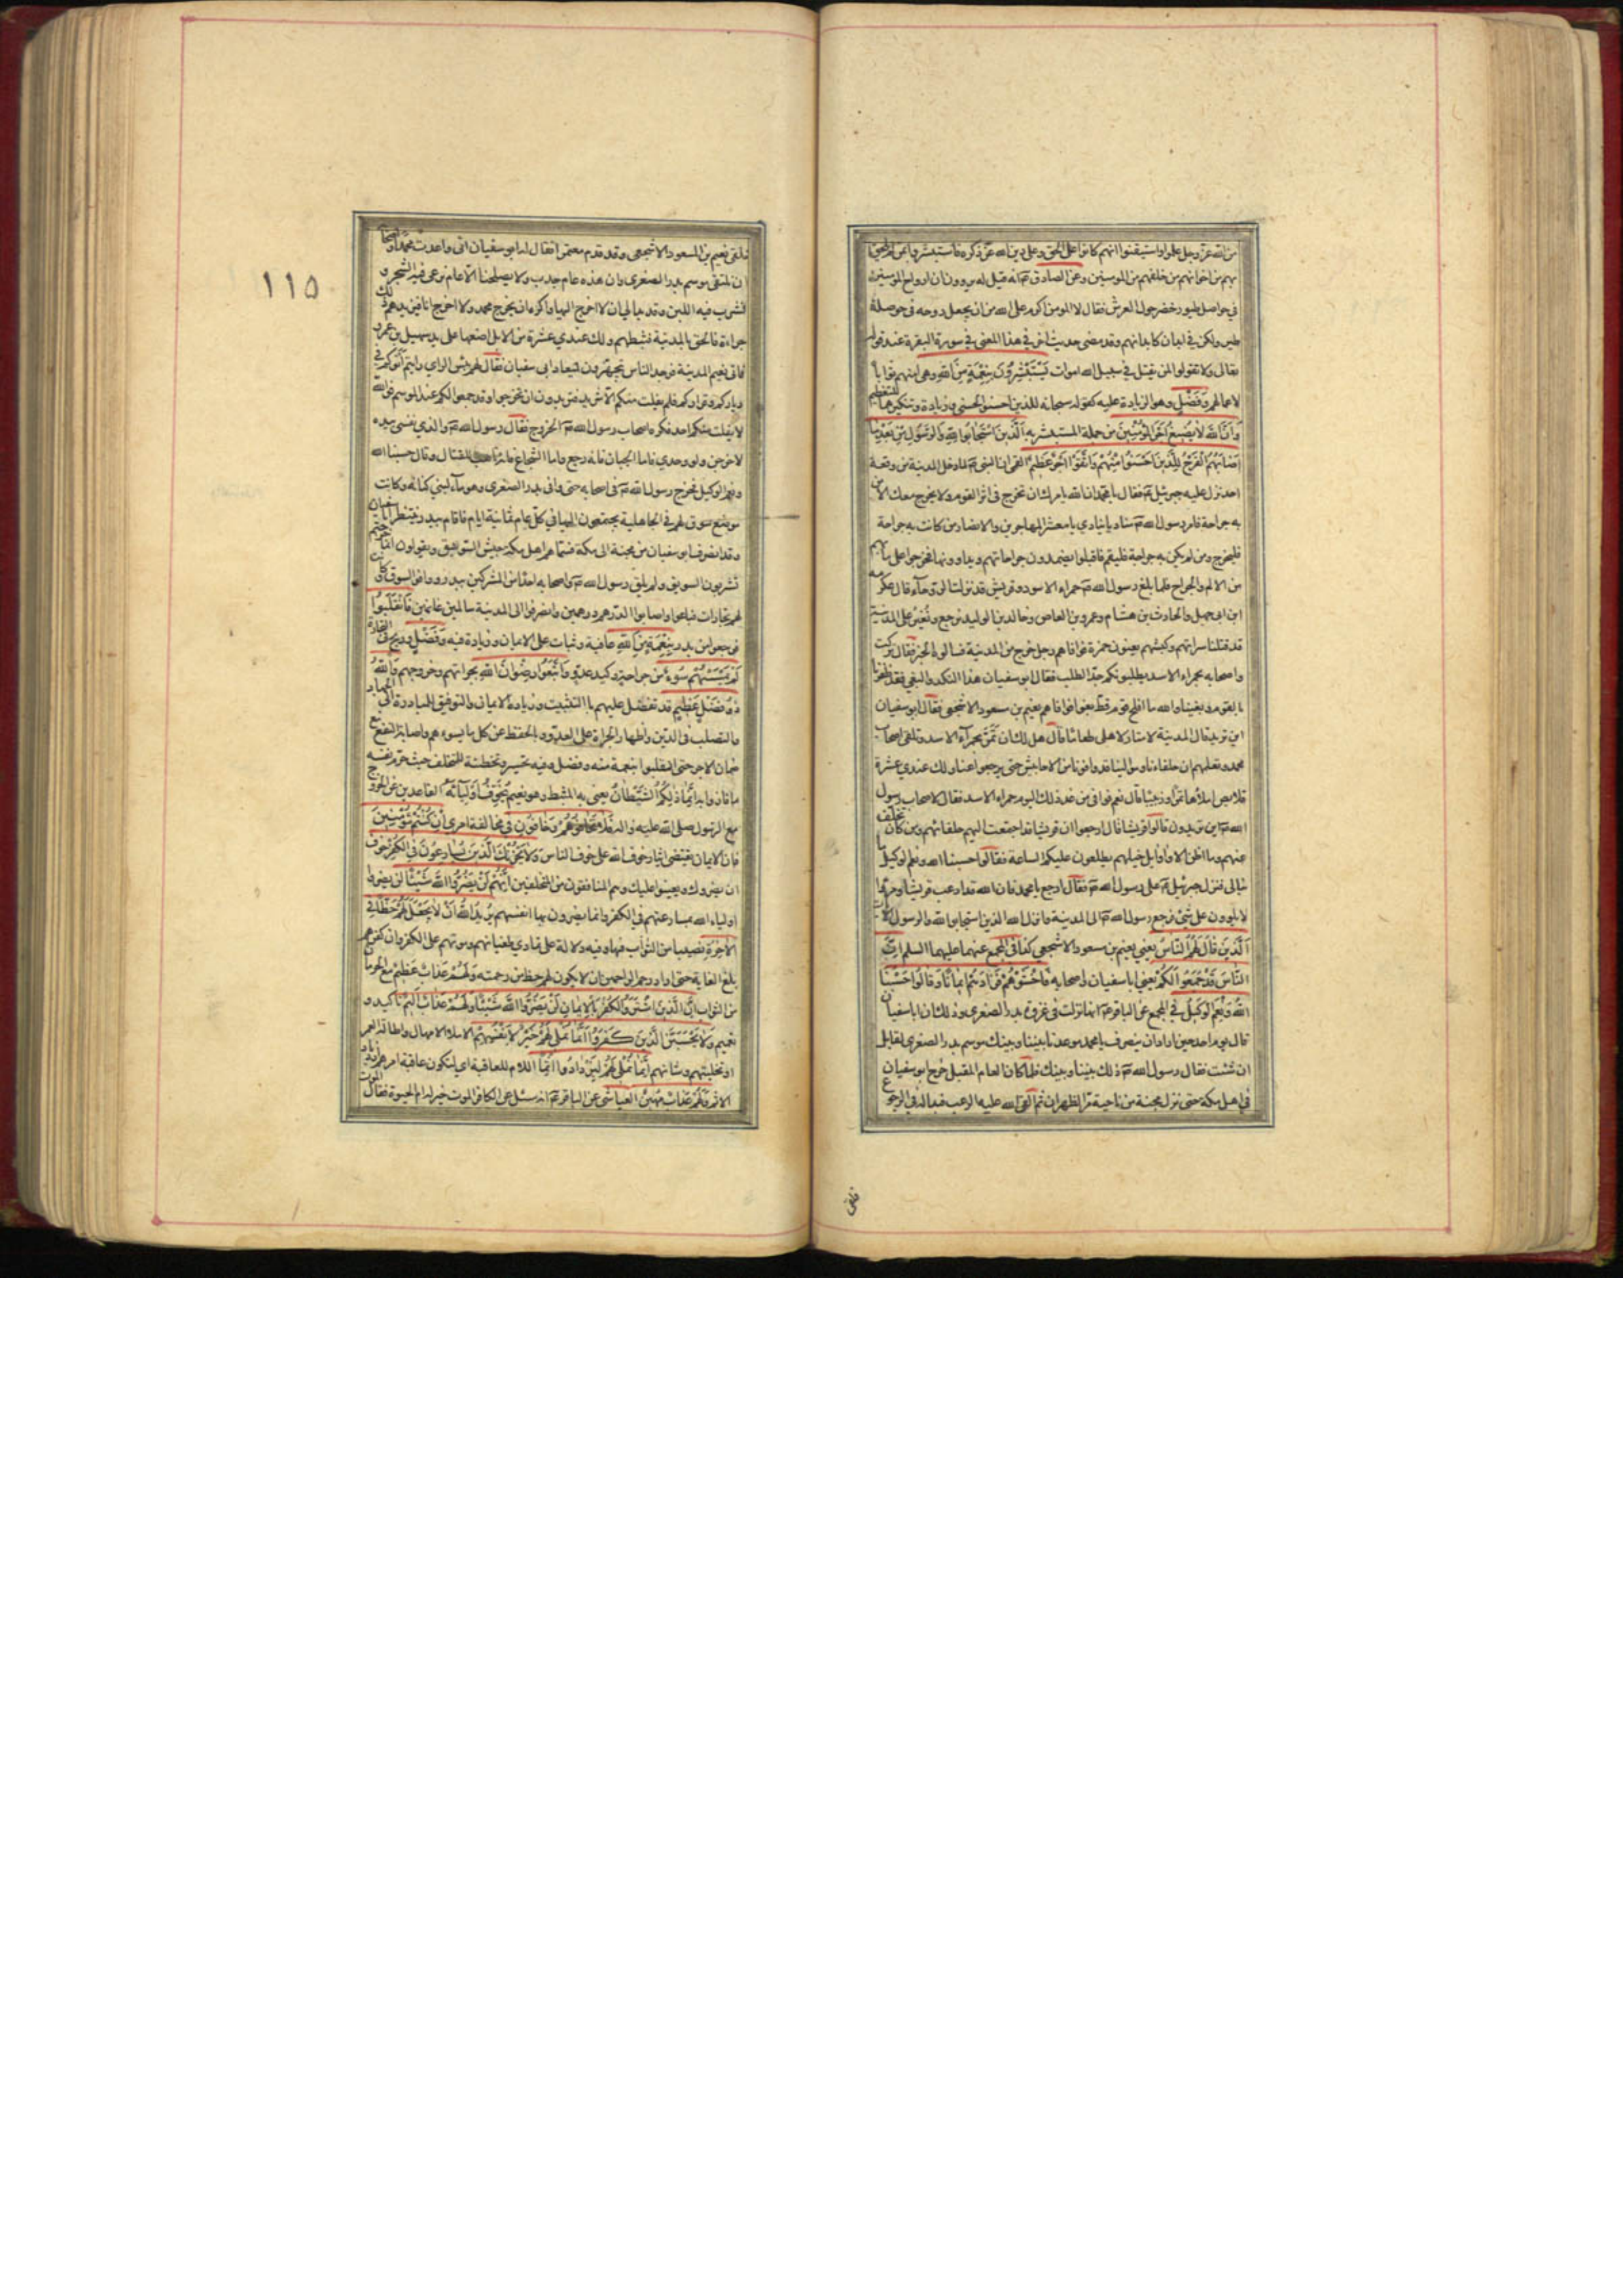 من الله عز وجل علموا واستيقنوا انهم كانوا على الحق وعلى دين الله عز ذكره فاستبشروا بمن لم يلحقوا
بهم من اخوانهم من خلفهم من المؤمنين وعن الصادق ع انه قيل له يروون ان ارواح المؤمنين
في حواصل طيور خضر حول العرش فقال لا المؤمن اكرم على الله من ان يجعل روحه في حوصلة
طير ولكن في ابدان كابدانهم وقد مضى حديث اخر في هذا المعنى في سورة البقرة عند قوله
تعالى ولا تقولوا لمن يقتل في سبيل الله اموات يَسْتَبْشِرُونَ بِنِعْمَةٍ مِنَ اللهِ
لاعمالهم وَفَضْلٍ وهو الزيادة عليه كقوله سبحانه للذين احسنوا الحسنى وزيادة وتنكيرهما للتعظيم
وَاَنَّ اللهَ لا يُضيعُ اَجْرَ الْمُؤْمِنينَ من جملة المستبشر به اَلَّذينَ اسْتَجابُوا لِلّهِ وَالرَّسُولِ مِنْ بَعْدِ ما
اَصابَهُمُ الْقَرْحُ لِلَّذينَ اَحْسَنُوا مِنْهُمْ وَاتَّقَوْا اَجْرٌ عَظيمٌ القمي ان النبي ص لما دخل المدينة من وقعة
احد نزل عليه جبرئيل ع فقال يا محمد ان الله يامرك ان تخرج في اثر القوم ولا يخرج معك الا من
به جراحة فامر رسول الله ص مناديا ينادي يا معشر المهاجرين والانصار من كانت به جراحة
فليخرج ومن لم يكن به جراحة فليقم فاقبلوا يضمدون جراحاتهم ويداوونها فخرجوا على ما بهم
من الالم والجراح فلما بلغ رسول الله ص حمراء الاسد وقريش قد نزلت الروحاء قال عكرمة
ابن ابي جهل والحارث بن هشام وعمرو بن العاص وخالد بن الوليد نرجع ونغير على المدينة
قد قتلنا سراتهم وكبشهم يعنون حمزة فوافاهم رجل خرج من المدينة فسألوه الخبر فقال تركت
محمدا واصحابه بحمراء الاسد يطلبونكم جد الطلب فقال ابو سفيان هذا النكد والبغي فقد ظفرنا
بالقوم وبغينا والله ما افلح قوم قط بغوا فوافاهم نعيم بن مسعود الاشجعي فقال ابو سفيان
اين تريد قال المدينة لامتار لاهلي طعاما قال هل لك ان تمر بحمراء الاسد وتلقى اصحاب
محمد وتعلمهم ان حلفاءنا وموالينا قد وافونا من الاحابيش حتى يرجعوا عنا ولك عندي عشرة
قلايص املأها تمرا وزبيبا قال نعم فوافى من غد ذلك اليوم حمراء الاسد فقال لاصحاب رسول
الله ص اين تريدون قالوا قريشا قال ارجعوا ان قريشا قد اجتمعت اليهم حلفائهم ومن كان تخلف
عنهم وما اظن الا واوايل خيلهم يطلعون عليكم الساعة فقالوا حسبنا الله ونعم الوكيل ما
نبالي فنزل جبرئيل ع على رسول الله ص فقال ارجع يا محمد فان الله قد ارعب قريشا ومروا
لا يلوون على شيء فرجع رسول الله ص الى المدينة وانزل الله الذين استجابوا لله والرسول الايات
اَلَّذينَ قالَ لَهُمُ النّاسُ يعني نعيم بن مسعود الاشجعي كذا في المجمع عنهما عليهما السلم اِنَّ
النّاسَ قَدْ جَمَعُوا لَكُمْ يعني ابا سفيان واصحابه فَاخْشَوْهُمْ فَزادَهُمْ ايمانًا وَقالُوا حَسْبُنَا
اللهُ وَنِعْمَ الْوَكيلُ في المجمع عن الباقر ع انها نزلت في غزوة بدر الصغرى وذلك ان ابا سفيان
قال يوم احد حين اراد ان ينصرف يا محمد موعدنا بيننا وبينك موسم بدر الصغرى لقابل
ان شئت فقال رسول الله ص ذلك بيننا وبينك فلما كان العام المقبل خرج ابو سفيان
في اهل مكة حتى نزل مجنة من ناحية مر الظهران ثم القى الله عليه الرعب فبدا له في الرجوع
فلقى
فلقي نعيم بن المسعود الاشجعي وقد قدم معتمرا فقال له ابو سفيان اني واعدت محمدا واصحابه
ان نلتقي بموسم بدر الصغرى وان هذه عام جدب ولا يصلحنا الا عام نرعى فيه الشجر و
نشرب فيه اللبن وقد بدا لي ان لا اخرج اليها واكره ان يخرج محمد ولا اخرج انا فيزيدهم ذلك
جراءة فالحق بالمدينة فثبطهم ولك عندي عشرة من الابل اضعها على يد سهيل بن عمرو
فاتى نعيم المدينة فوجد الناس يتجهزون لميعاد ابي سفيان فقال لهم بئس الراي رايتم اتوكم في
دياركم وقراركم فلم يفلت منكم الا شريد فتريدون ان تخرجوا وقد جمعوا لكم عند الموسم فوالله
لا يفلت منكم احد فكره اصحاب رسول الله ص الخروج فقال رسول الله ص والذي نفسي بيده
لاخرجن ولو وحدي فاما الجبان فانه رجع واما الشجاع فانه تاهب للقتال وقال حسبنا الله
ونعم الوكيل فخرج رسول الله ص في اصحابه حتى وافى بدر الصغرى وهو ماء لبني كنانة وكانت
موضع سوق لهم في الجاهلية يجتمعون اليها في كل عام ثمانية ايام فاقام ببدر ينتظر ابا سفيان
وقد انصرف ابو سفيان من مجنة الى مكة فسماهم اهل مكة جيش السويق ويقولون انما خرجتم
تشربون السويق ولم يلق رسول الله ص واصحابه احدا من المشركين ببدر ووافوا السوق وكانت
لهم تجارات فباعوا واصابوا الدرهم درهمين وانصرفوا الى المدينة سالمين غانمين فَانْقَلَبُوا
فرجعوا من بدر بِنِعْمَةٍ مِنَ اللهِ عافية وثبات على الايمان وزيادة فيه وَفَضْلٍ وربح في التجارة
لَمْ يَمْسَسْهُمْ سُوءٌ من جراحة وكيد عدو وَاتَّبَعُوا رِضْوانَ اللهِ بجراتهم وخروجهم وَاللهُ
ذُو فَضْلٍ عَظيمٍ قد تفضل عليهم بالتثبيت وزيادة الايمان والتوفيق للمبادرة الى الجهاد
والتصلب في الدين واظهار الجراة على العدو وبالحفظ عن كل ما يسوءهم واصابة النفع مع
ضمان الاجر حتى انقلبوا بنعمة منه وفضل وفيه تحسير وتخطئة للمتخلف حيث حرم نفسه
ما فازوا به اِنَّما ذلِكُمُ الشَّيْطانُ يعني به المثبط وهو نعيم يُخَوِّفُ اَوْلِياءَهُ القاعدين عن الخروج
مع الرسول صلى الله عليه واله فَلا تَخافُوهُمْ وَخافُونِ في مخالفة امري اِنْ كُنْتُمْ مُؤْمِنينَ
فان الايمان يقتضي ايثار خوف الله على خوف الناس وَلا يَحْزُنْكَ الَّذينَ يُسارِعُونَ فِي الْكُفْرِ خوف
ان يضروك ويعينوا عليك وهم المنافقون من المتخلفين اِنَّهُمْ لَنْ يَضُرُّوا اللهَ شَيْئًا لن يضروا
اولياء الله بمسارعتهم في الكفر وانما يضرون بها انفسهم يُريدُ اللهُ اَنْ لا يَجْعَلَ لَهُمْ حَظًّا فِي
الْاخِرَةِ نصيبا من الثواب فيها وفيه دلالة على تمادي طغيانهم وموتهم على الكفر وان كفرهم
بلغ الغاية حتى اراد ارحم الراحمين ان لا يكون لهم حظ من رحمته وَلَهُمْ عَذابٌ عَظيمٌ مع الحرمان
من الثواب اِنَّ الَّذينَ اشْتَرَوُا الْكُفْرَ بِالْايمانِ لَنْ يَضُرُّوا اللهَ شَيْئًا وَلَهُمْ عَذابٌ اَليمٌ تاكيد و
تعميم وَلا يَحْسَبَنَّ الَّذينَ كَفَرُوا اَنَّما نُمْلي لَهُمْ خَيْرٌ لِاَنْفُسِهِمْ الاملاء الامهال واطالة العمر
او تخليتهم وشانهم اِنَّما نُمْلي لَهُمْ لِيَزْدادُوا اِثْمًا اللام للعاقبة اي لتكون عاقبة امرهم ازدياد
الاثم وَلَهُمْ عَذابٌ مُهينٌ العياشي عن الباقر ع انه سئل عن الكافر الموت خير له ام الحيوة فقال الموت
١١٥